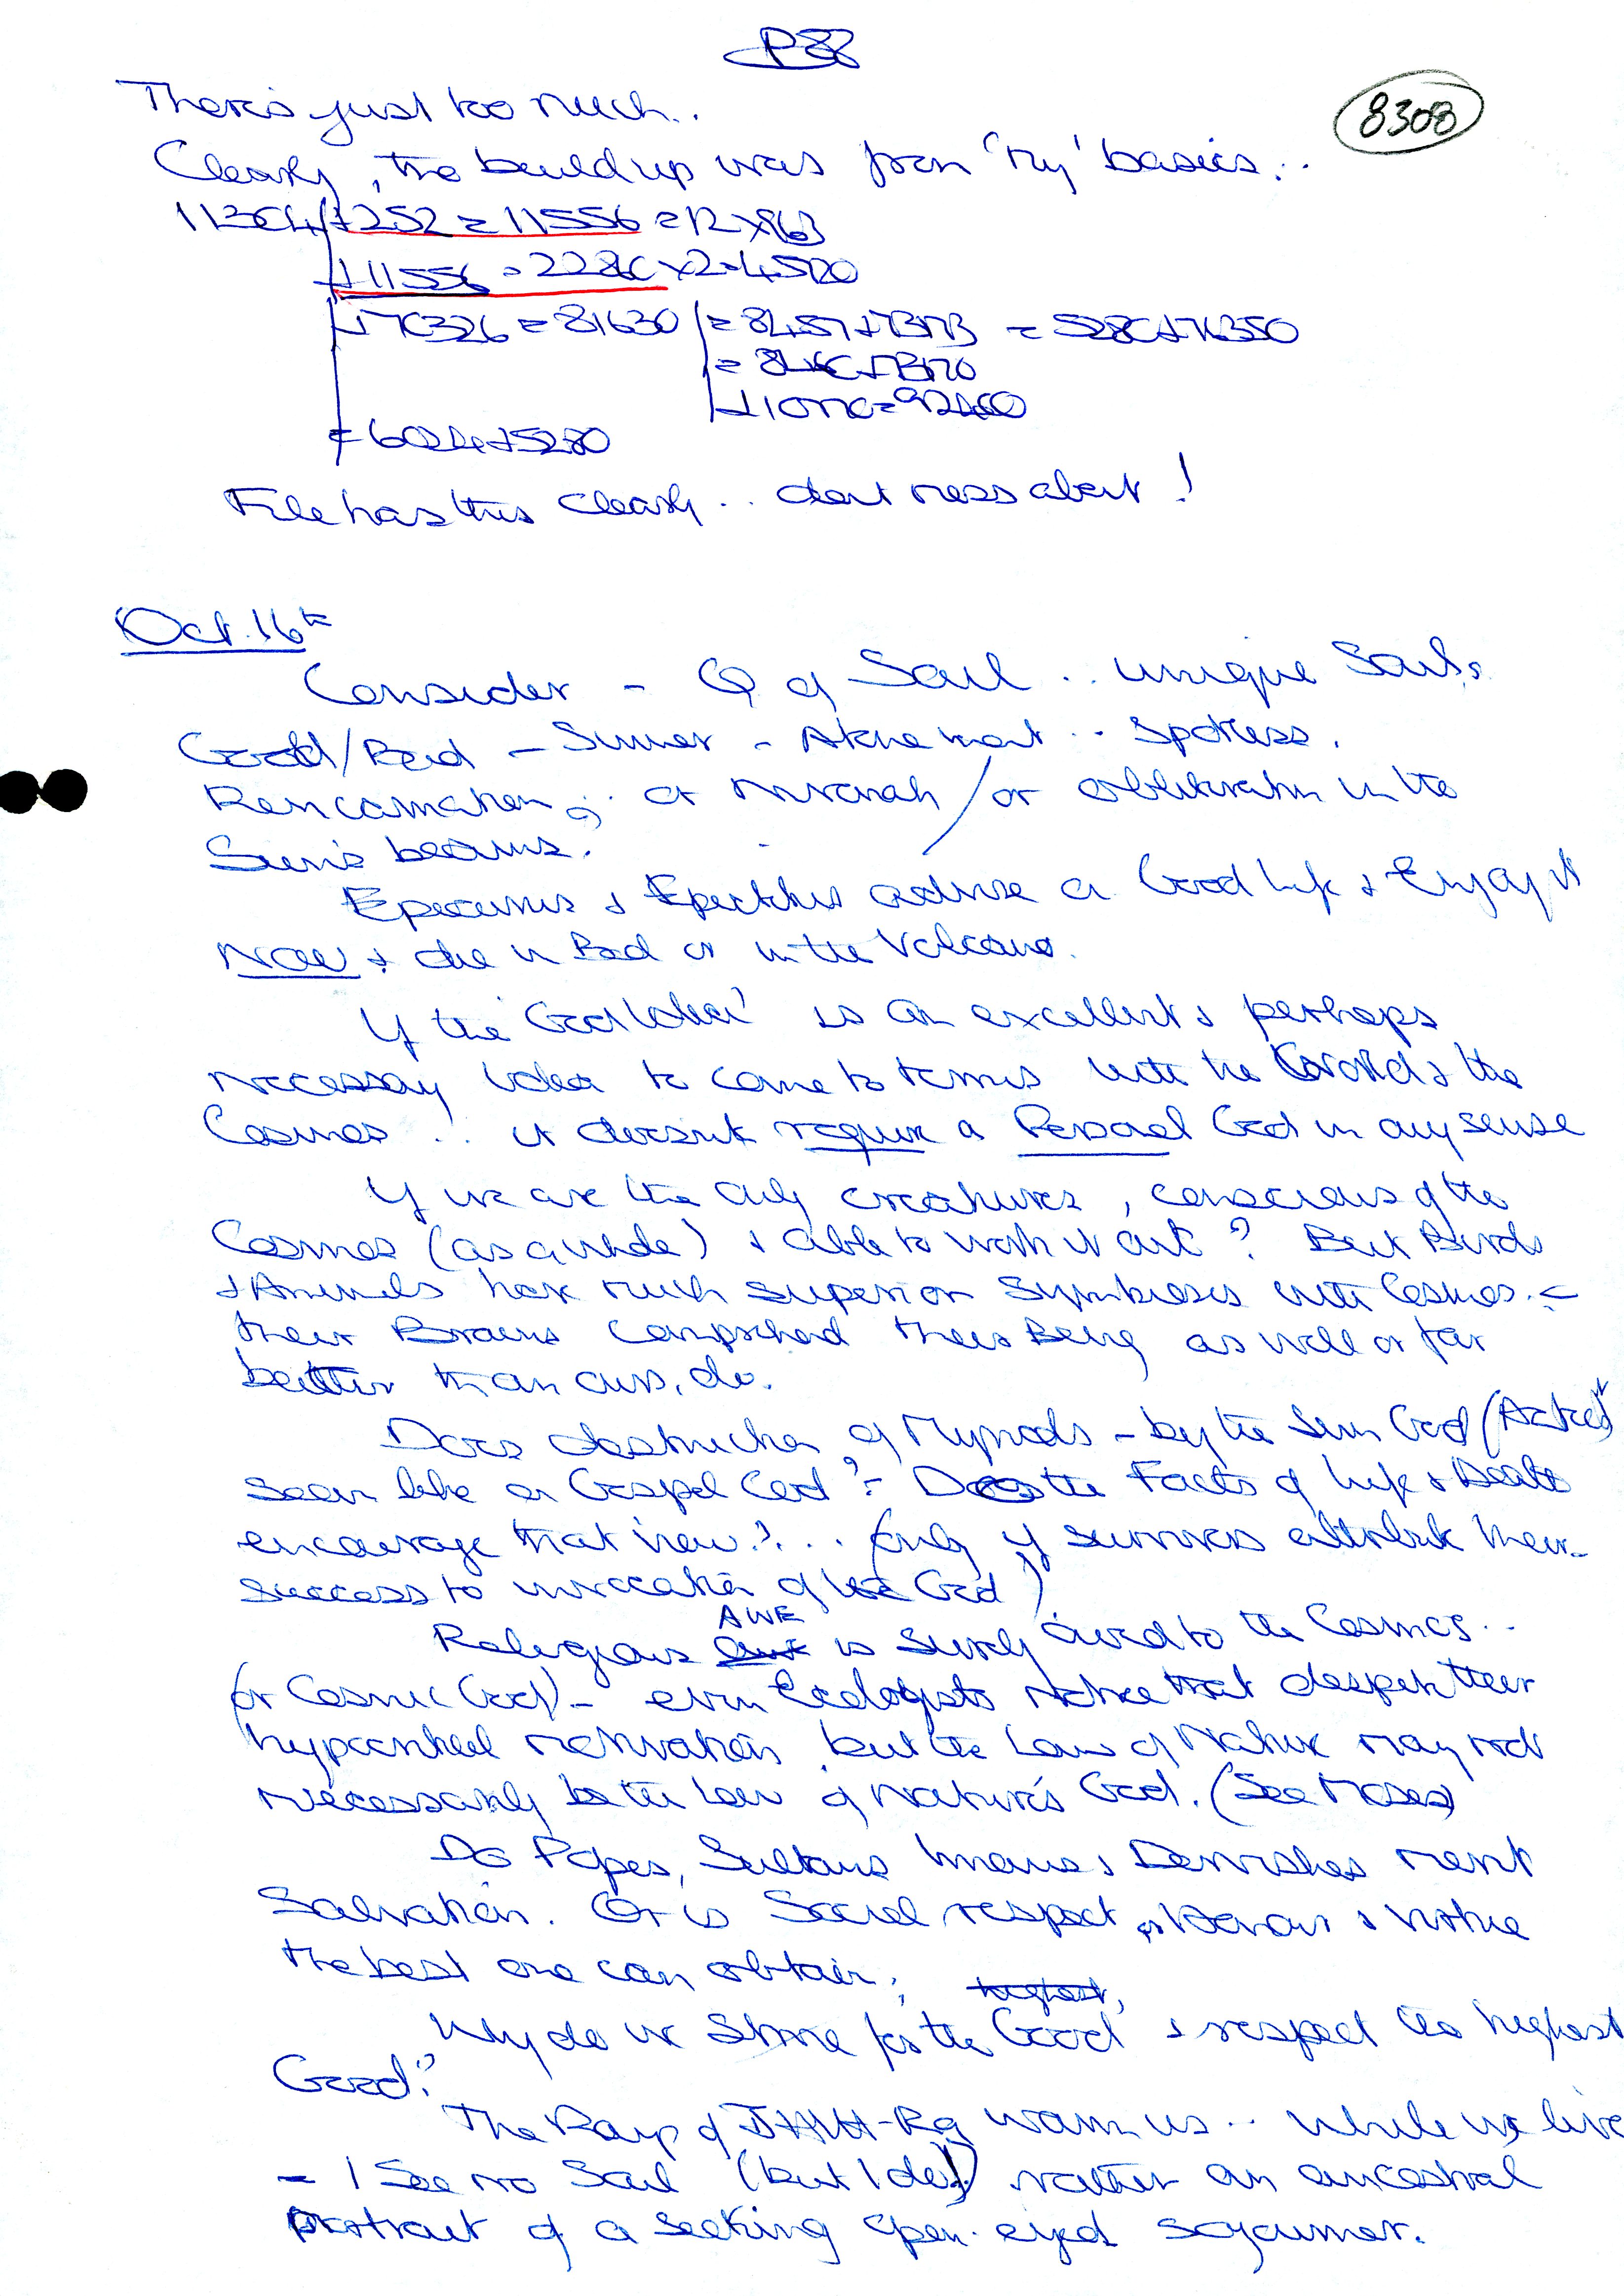 P38
8308
There's just too much..
Clearly, the build up was from 'my' basics...
+252 = 11556 = 12 × 963
+11556 =
= 81630
File has this clearly .. dont mess about!
Oct. 16th
Consider - Q of Soul .. unique Souls.
Good/Bad - Sinner - Atonement .. Spotless.
Reincarnation; or Nirvanah / or obliteration in the
Sun's beams.
Epicurus & Epictetus advise a Good Life & Enjoy it
NOW & die in Bed or in the Volcano.
If the 'God Idea' is an excellent & perhaps
necessary idea to come to terms with the World & the
Cosmos .. it doesnt require a Personal God in any sense
If we are the only creatures, conscious of the
Cosmos (as a whole) & able to work it out? But Birds
& Animals have much superior Symbiosis with Cosmos. -
their Brains comprehend their Being as well or far
better than ours, do.
Does destruction of Myriads - by the Sun God
seem like a Gospel God? - Do the Facts of Life & Death
encourage that view? ... (only if survivors attribute their
success to invocation of the God)
AWE
Religious is surely owed to the Cosmos ..
(or Cosmic God) - even Ecologists notice that despite their
hypocritical motivation but the Law of Nature may not
necessarily be the Law of Nature's God. (See Moses)
Do Popes, Sultans Imams & Dervishes merit
Salvation. Or is Social respect, or Honour & Virtue
the best one can obtain;
highest,
Why do we strive for the Good & respect its highest
Good?
The Rays of warm us .. while we live
- I see no Soul (but I do!) rather an ancestral
portrait of a seeking open-eyed sojourner.